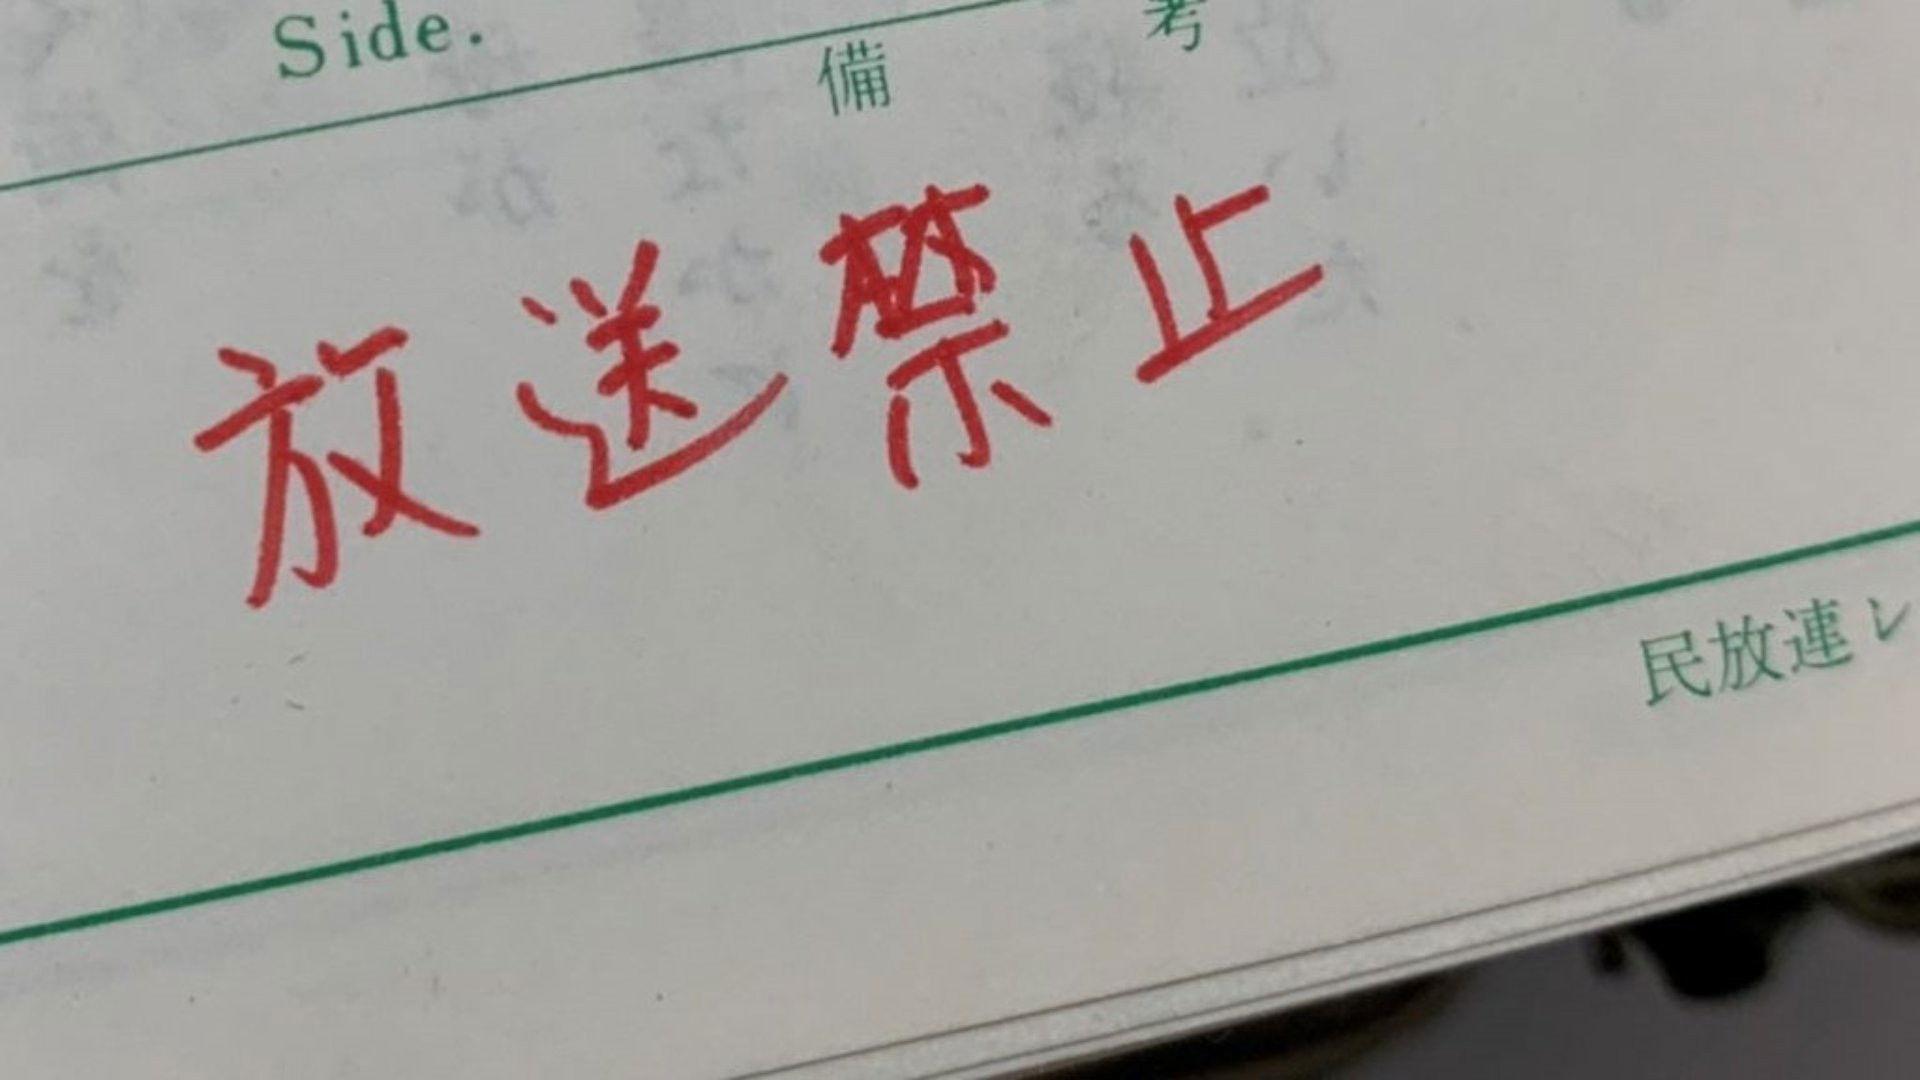 Side.
備考
放送禁止
民放連レ